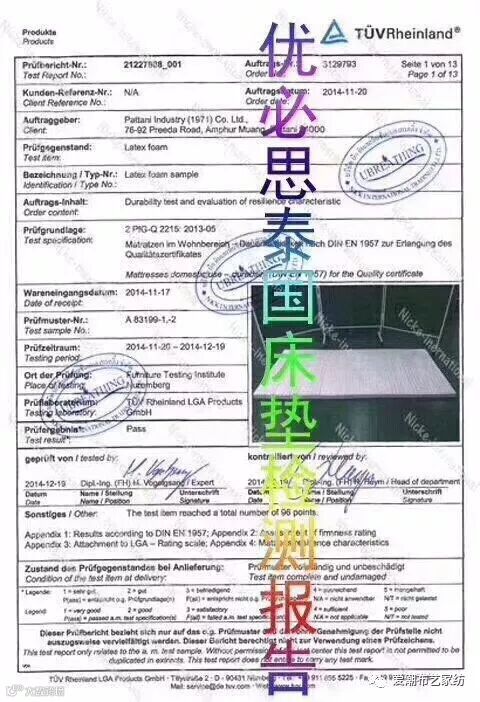 Produkte
Products
TÜVRheinland®
Prüfbericht-Nr.:
Test Report No.:
21227808_001
Auftrags-Nr.:
Order
3129793
Seite 1 von 13
Page 1 of 13
Kunden-Referenz-Nr.:
Client Reference No.:
N/A
Auftragsdatum:
Order date:
2014-11-20
Auftraggeber:
Client:
Pattani Industry (1971) Co. Ltd.,
76-92 Preeda Road, Amphur Muang, Pattani 94000
Prüfgegenstand:
Test item:
Latex foam
Bezeichnung / Typ-Nr.:
Identification / Type No.:
Latex foam sample
Auftrags-Inhalt:
Order content:
Durability test and evaluation of resilience characteristic
Prüfgrundlage:
Test specification:
2 PfG-Q 2215: 2013-05
Matratzen im Wohnbereich – nach DIN EN 1957 zur Erlangung des
Qualitätszertifikates
Mattresses domestic use – (DIN EN 1957) for the Quality certificate
Wareneingangsdatum:
Date of receipt:
2014-11-17
Prüfmuster-Nr.:
Test sample No.:
A 83199-1,-2
Prüfzeitraum:
Testing period:
2014-11-20 – 2014-12-19
Ort der Prüfung:
Place of testing:
Furniture Testing Institute
Nuremberg
Prüflaboratorium:
Testing laboratory:
TÜV Rheinland LGA Products
GmbH
Prüfergebnis:
Test result*:
Pass
geprüft von / tested by:
kontrolliert von / reviewed by:
2014-12-19 Dipl.-Ing. (FH) H. Vogelgsang / Expert
2014-12-19 Dipl.-Ing. (FH) H. Heym / Head of department
Datum Name / Stellung Unterschrift
Date Name / Position Signature
Datum Name / Stellung Unterschrift
Date Name / Position Signature
Sonstiges / Other: The test item reached a total number of 96 points.
Appendix 1: Results according to DIN EN 1957; Appendix 2: of firmness rating
Appendix 3: Attachment to LGA – Rating scale; Appendix 4: characteristics
Zustand des Prüfgegenstandes bei Anlieferung:
Condition of the test item at delivery:
Prüfmuster vollständig und unbeschädigt
Test item complete and undamaged
* Legende: 1 = sehr gut 2 = gut 3 = befriedigend 4 = ausreichend 5 = mangelhaft
P(ass) = entspricht o.g. Prüfgrundlage(n) F(ail) = entspricht nicht o.g. N/A = nicht anwendbar N/T = nicht getestet
Legend: 1 = very good 2 = good 3 = satisfactory 4 = sufficient 5 = poor
P(ass) = passed a.m. test specification(s) F(ail) = failed a.m. test specification(s) N/A = not applicable N/T = not tested
Dieser Prüfbericht bezieht sich nur auf das o.g. Prüfmuster und darf ohne Genehmigung der Prüfstelle nicht
auszugsweise vervielfältigt werden. Dieser Bericht berechtigt nicht zur Verwendung eines Prüfzeichens.
This test report only relates to the a. m. test sample. Without permission of the test center this test report is not permitted to be
duplicated in extracts. This test report does not entitle to carry any test mark.
TÜV Rheinland LGA Products GmbH · Tillystraße 2 · D - 90431 Nürnberg
优必思泰国床垫检测报告
UBREATHING
UBREATHING
UBREATHING
爱潮布艺家纺